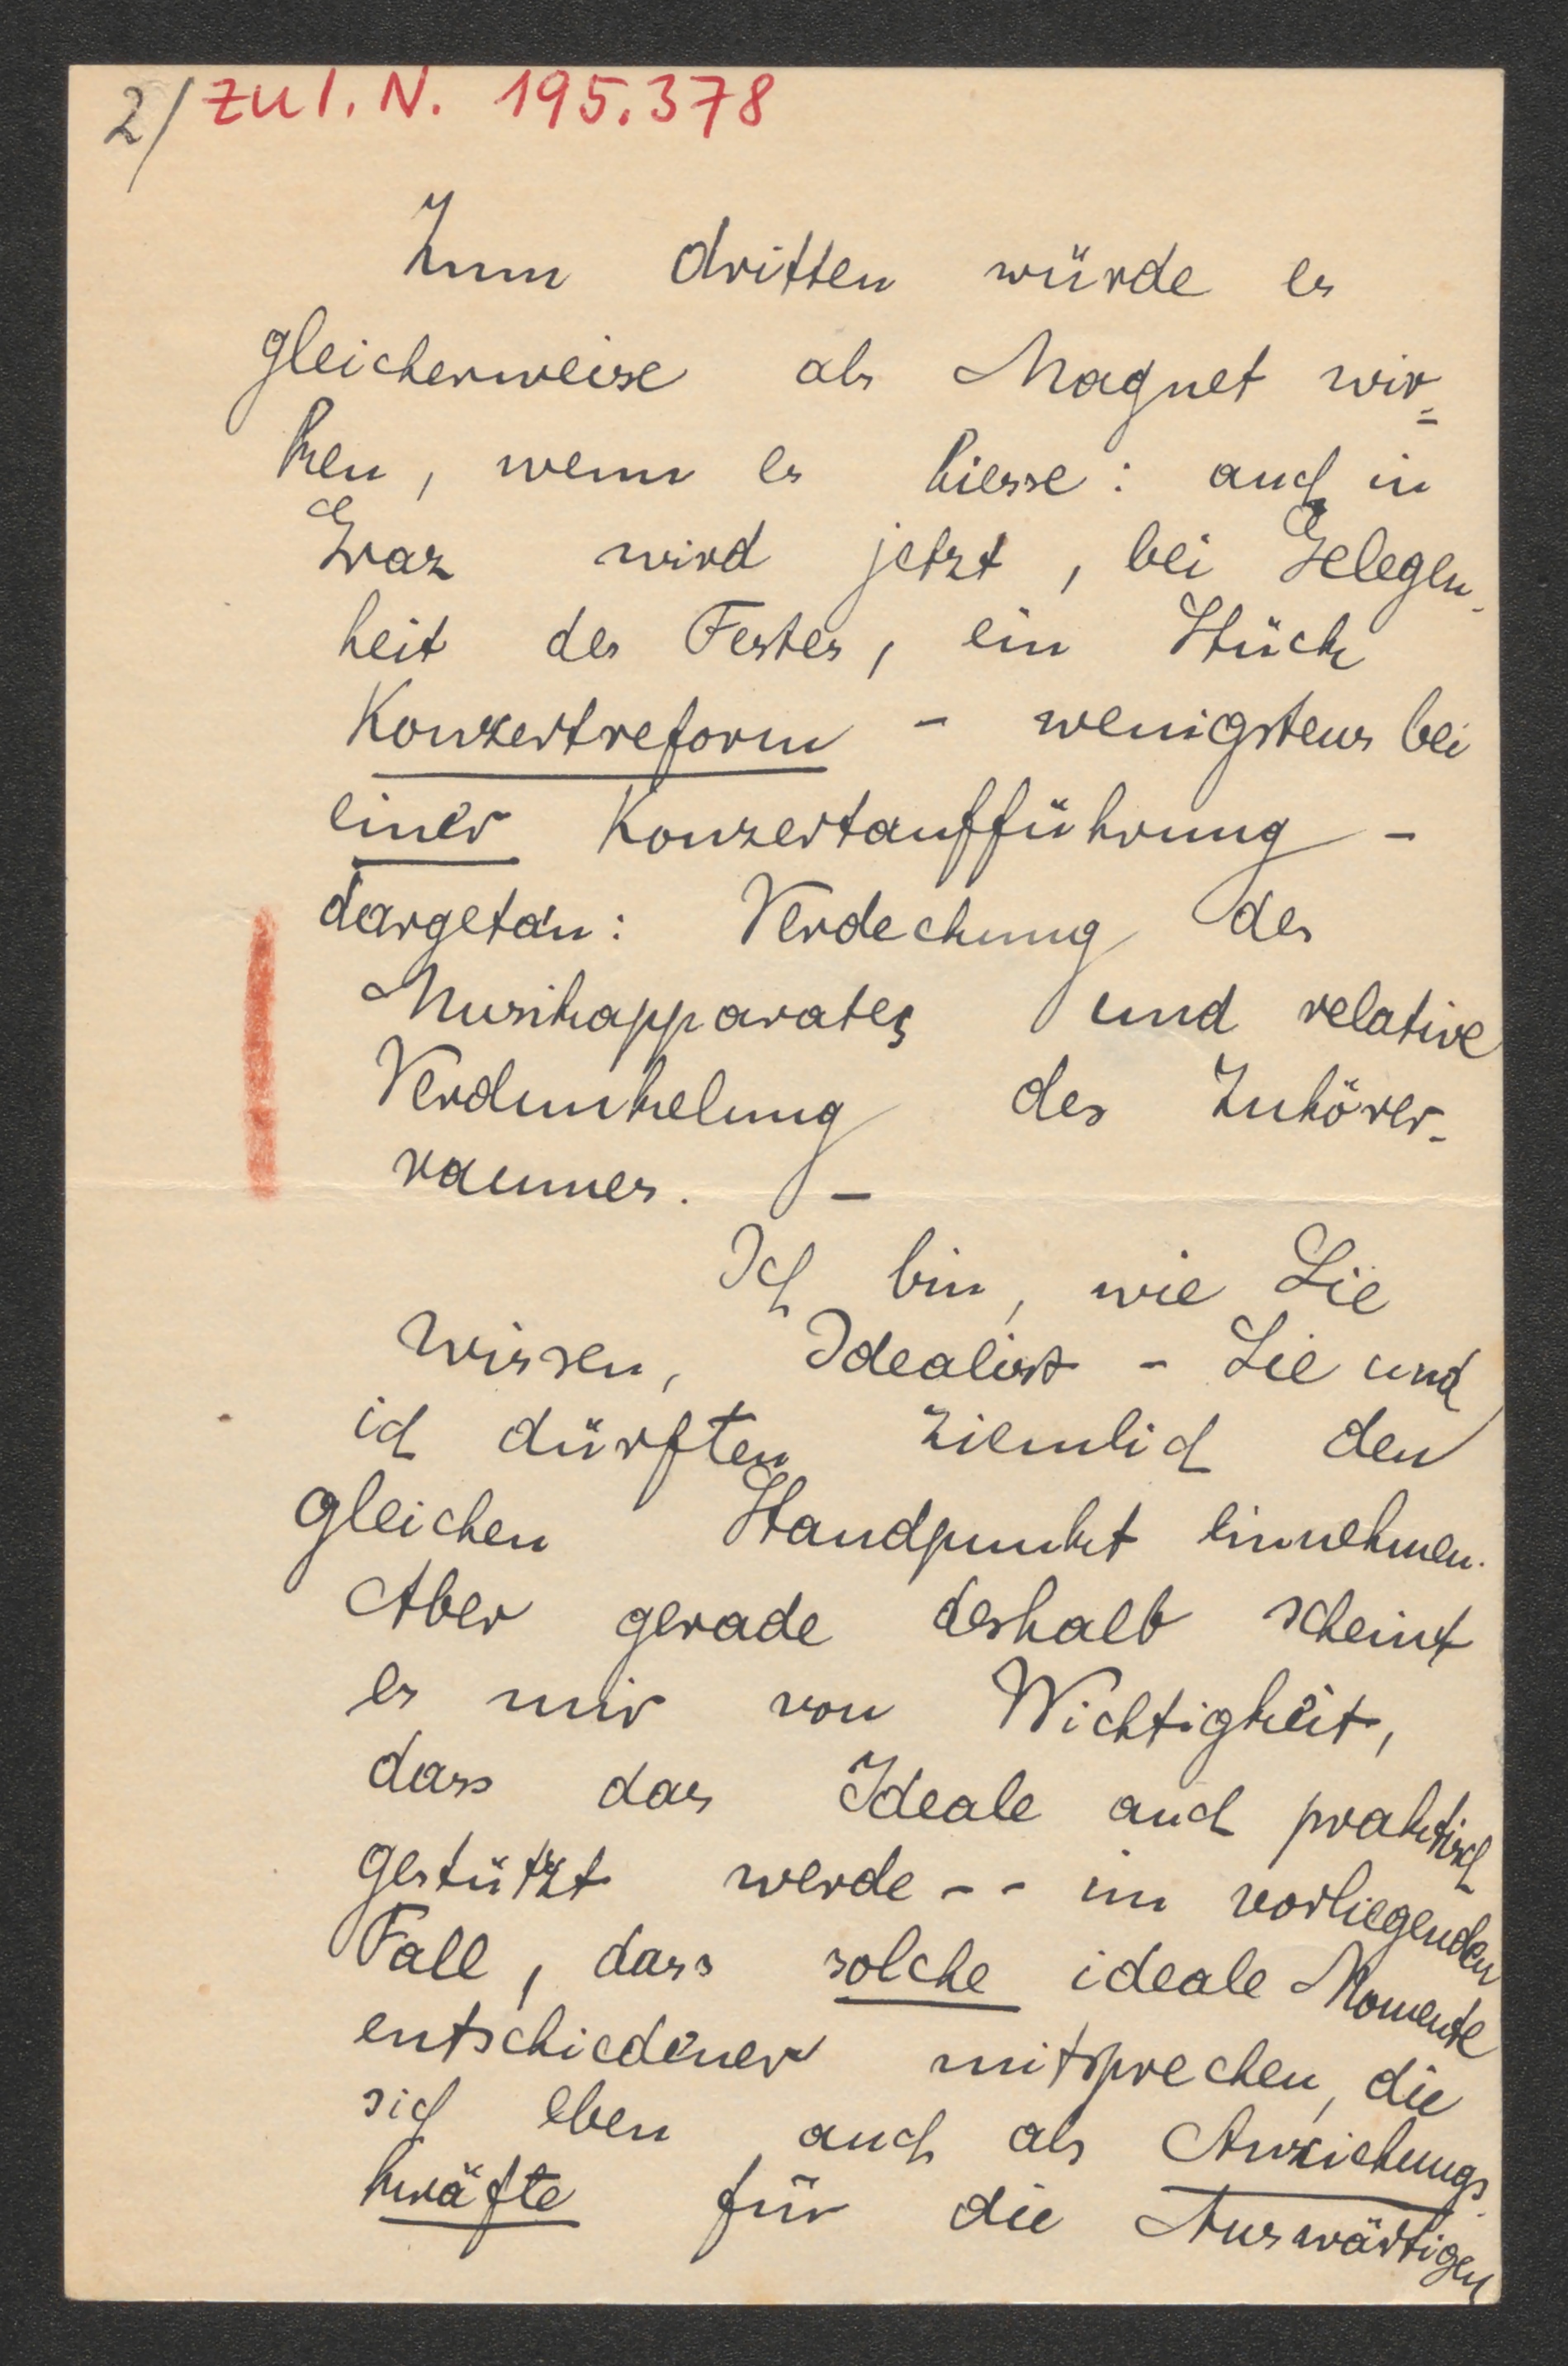 2/ zu I. N. 195.378
Zum dritten würde es
gleicherweise als Magnet wir=
ken, wenn es hiesse: auch in
Graz wird jetzt, bei Gelegen-
heit des Festes, ein Stück
Konzertreform - wenigstens bei
einer Konzertaufführung -
dargetan: Verdeckung des
Musikapparates und relative
Verdunkelung des Zuhörer-
raumes. -
Ich bin, wie Sie
wissen, Idealist - Sie und
ich dürften ziemlich den
gleichen Standpunkt einnehmen.
Aber gerade deshalb scheint
es mir von Wichtigkeit,
dass das Ideale auch praktisch
gestützt werde - - im vorliegenden
Fall, dass solche ideale Momente
entschiedener mitsprechen, die
sich eben auch als Anziehungs-
kräfte für die Auswärtigen